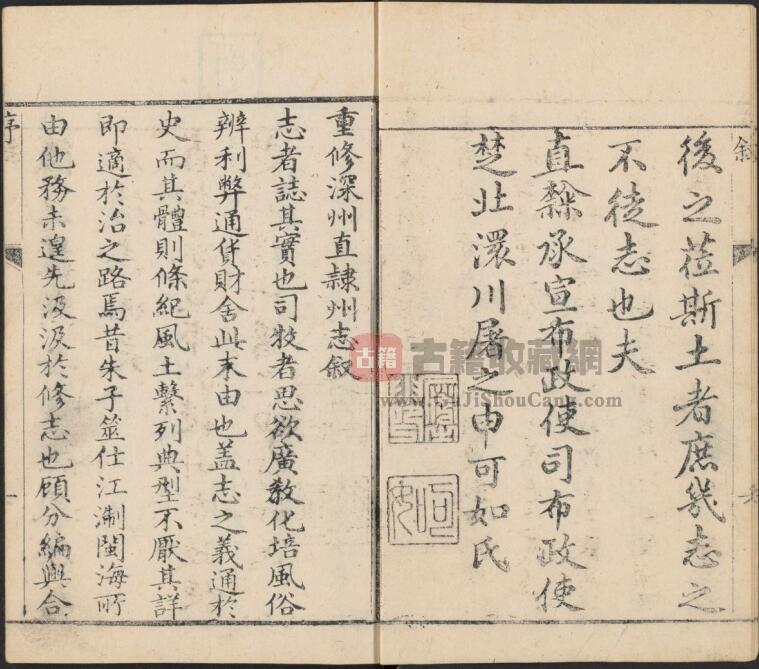 敘
後之蒞斯土者庶幾志之
不徒志也夫
直隸承宣布政使司布政使
楚北澴川屠之申可如氏
重修深州直隸州志敘
志者誌其實也司牧者思欲廣教化培風俗
辨利弊通貨財舍此末由也盖志之義通於
史而其體則條紀風土繫列典型不厭其詳
即適於治之路焉昔朱子筮仕江淛閩海所
由他務未遑先汲汲於修志也顧分編與合
序
一
古籍 古籍收藏網
www.GuJiShouCang.com